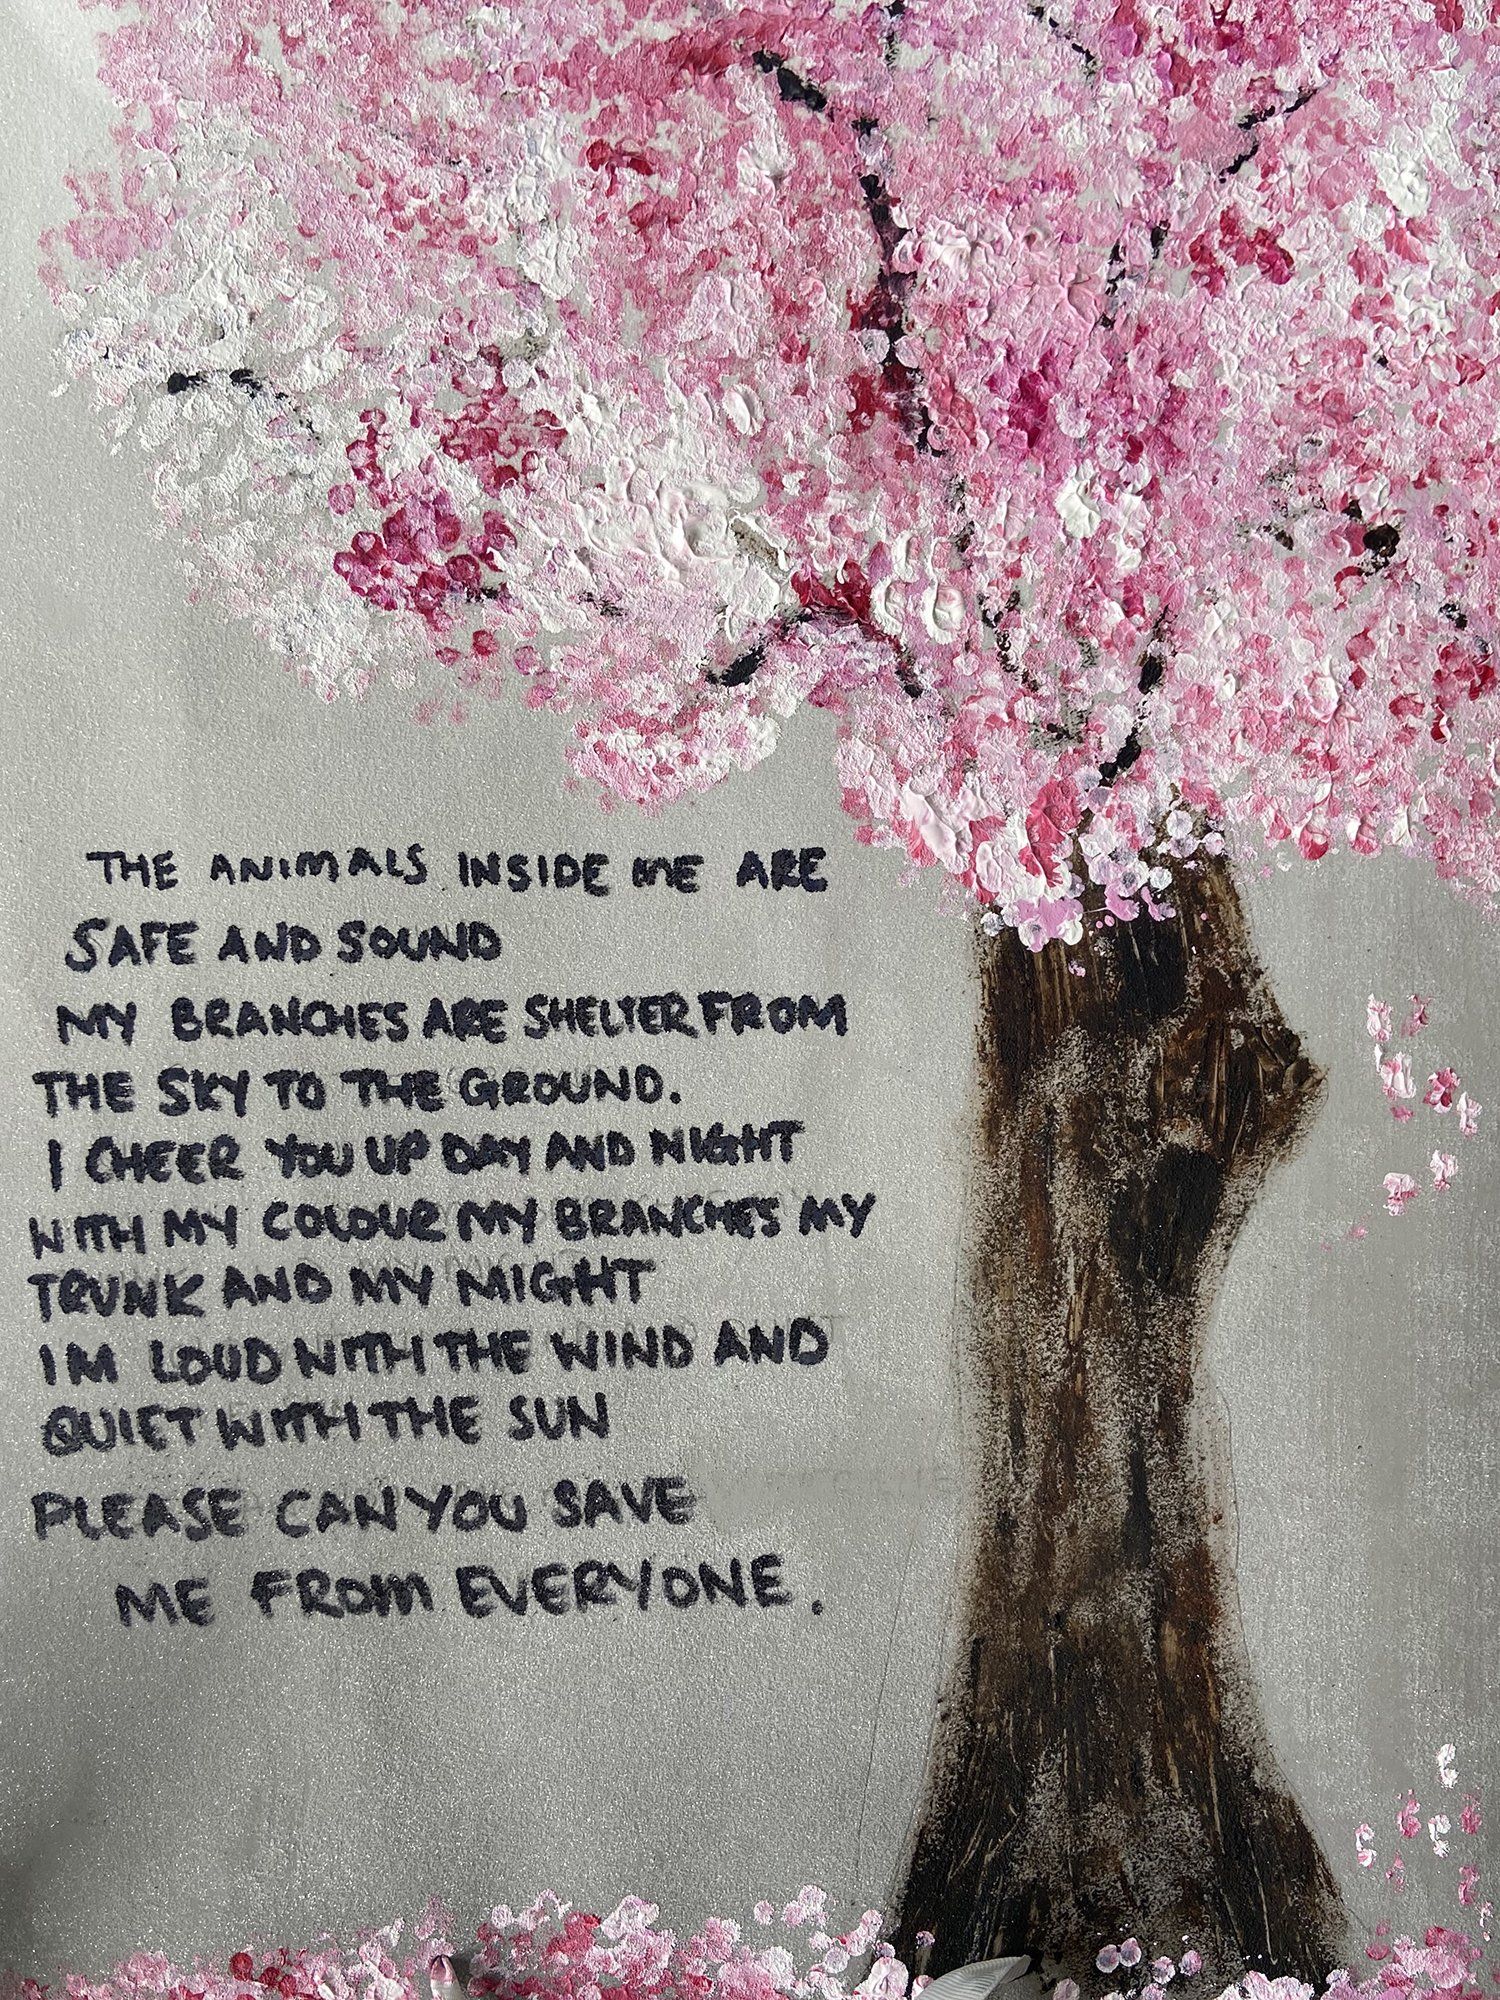 THE ANIMALS INSIDE ME ARE
SAFE AND SOUND
MY BRANCHES ARE SHELTER FROM
THE SKY TO THE GROUND.
I CHEER YOU UP DAY AND NIGHT
WITH MY COLOUR MY BRANCHES MY
TRUNK AND MY MIGHT
IM LOUD WITH THE WIND AND
QUIET WITH THE SUN
PLEASE CAN YOU SAVE
ME FROM EVERYONE.